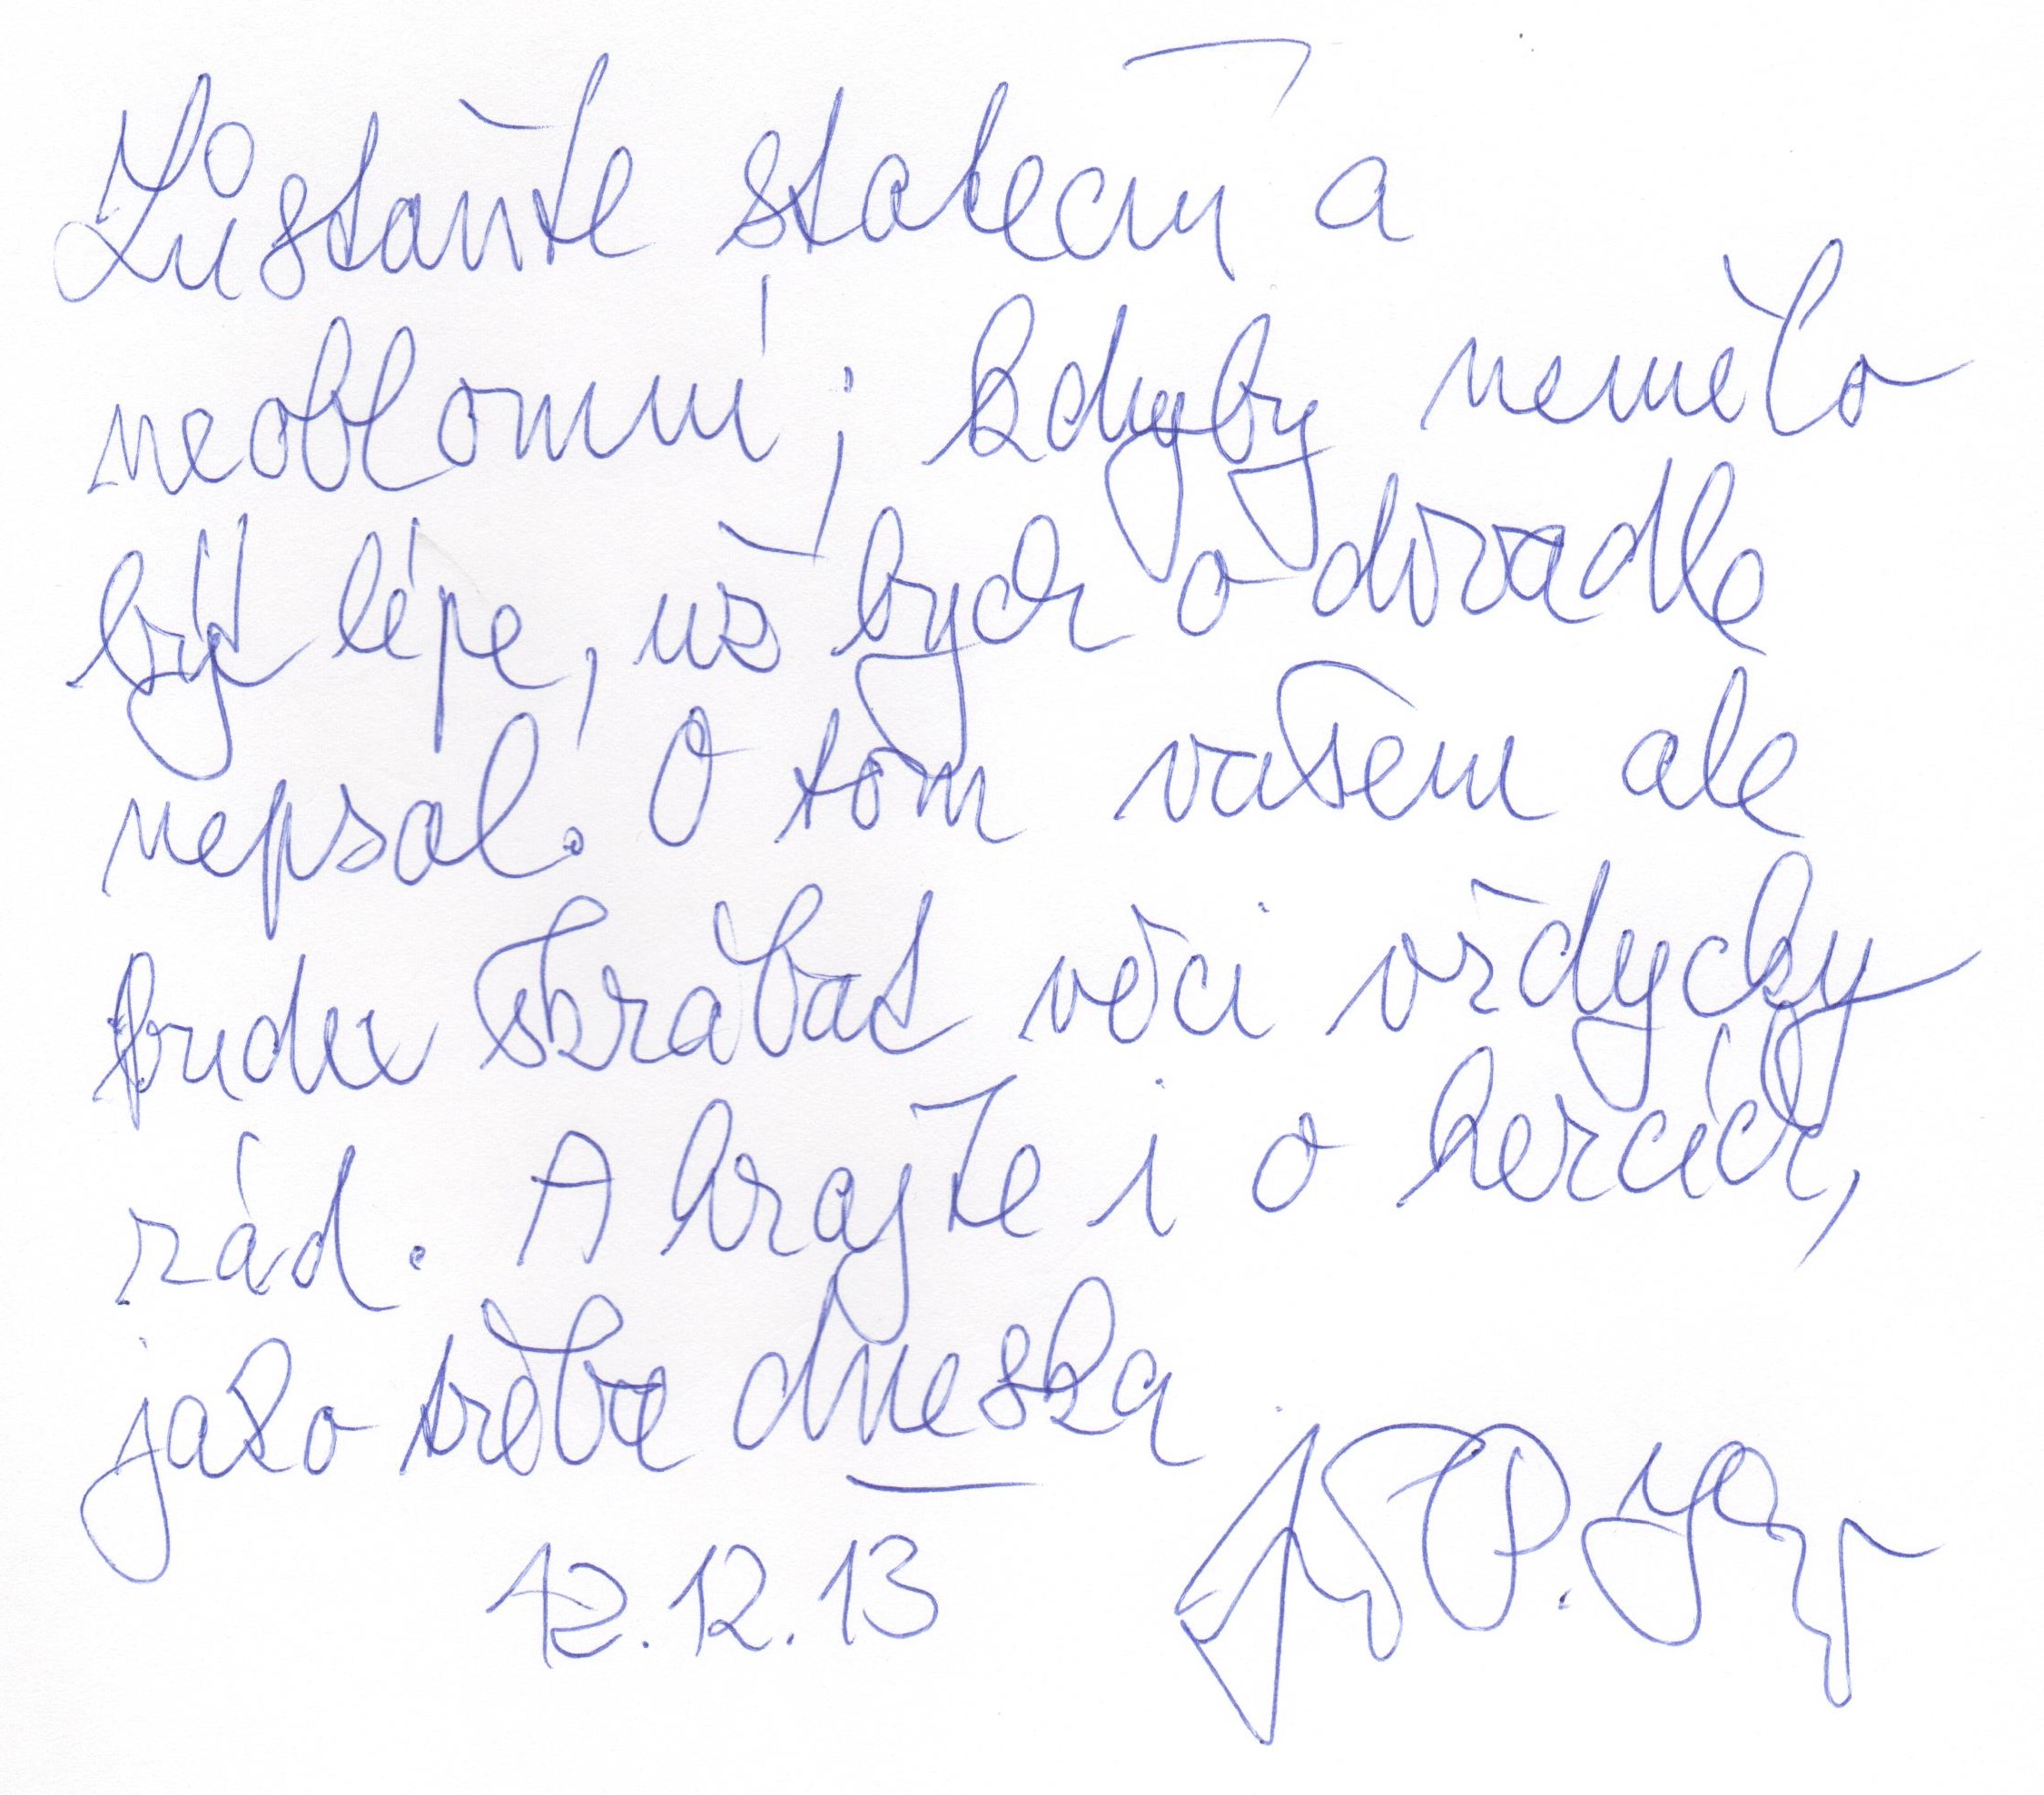 Zůstaňte stateční a
neoblomní; kdyby nemělo
být lépe, už bych o divadle
nepsal. O tom vašem ale
budu škrábat věci vždycky
rád. A hrajte i o hercích,
jako třeba dneska
12.12.13 P.